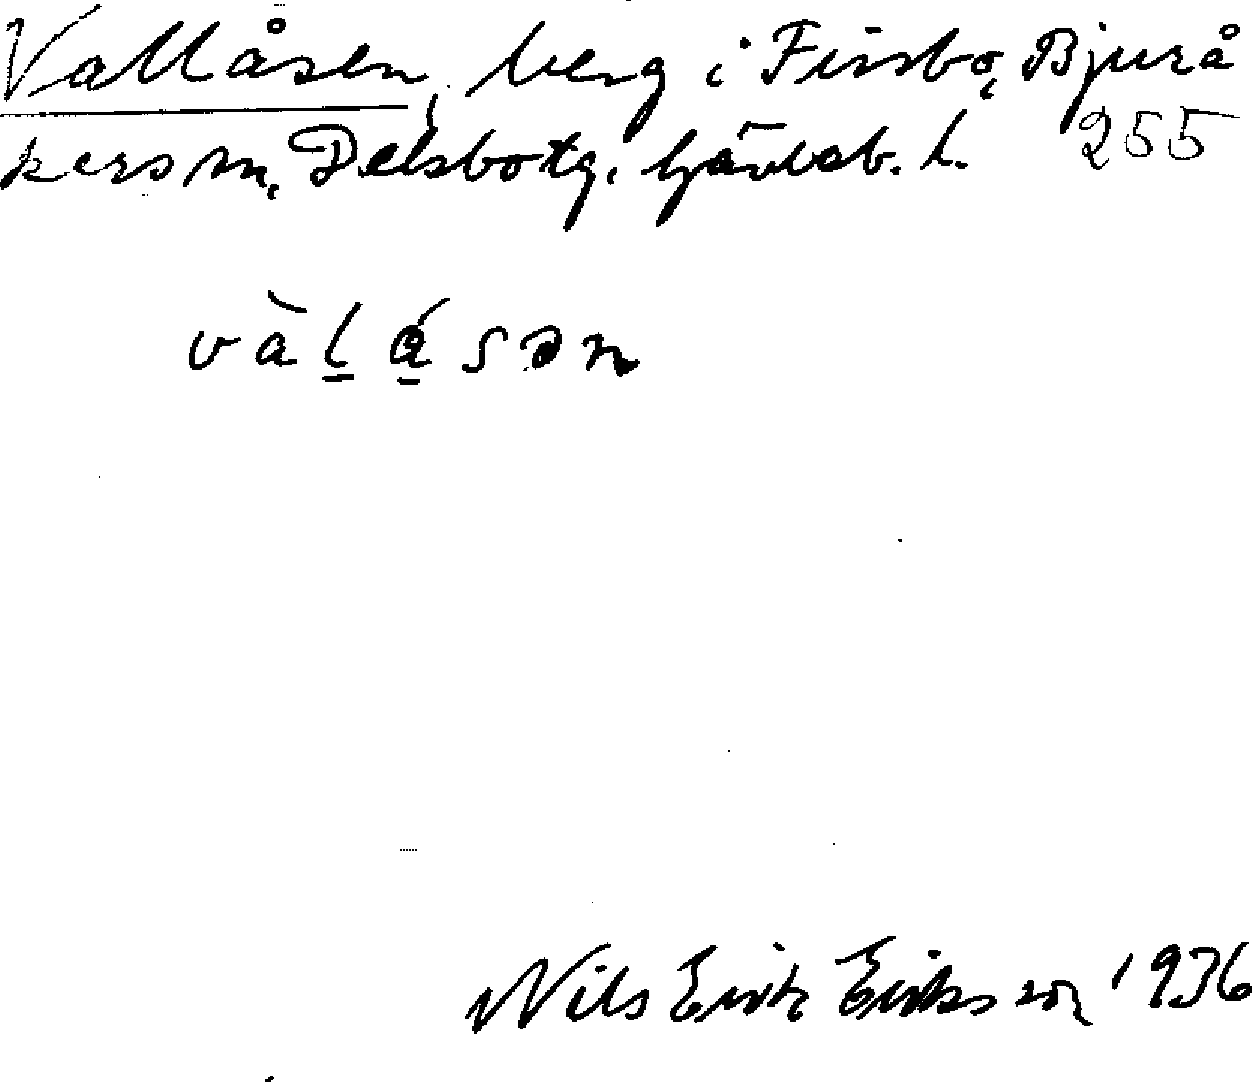 Vallåsen, berg i Firsbo, Bjurå
kers sn, Delsbo tg. Gävleb. l. 255
vàlåsən
Nils Erik Eriksson 1936